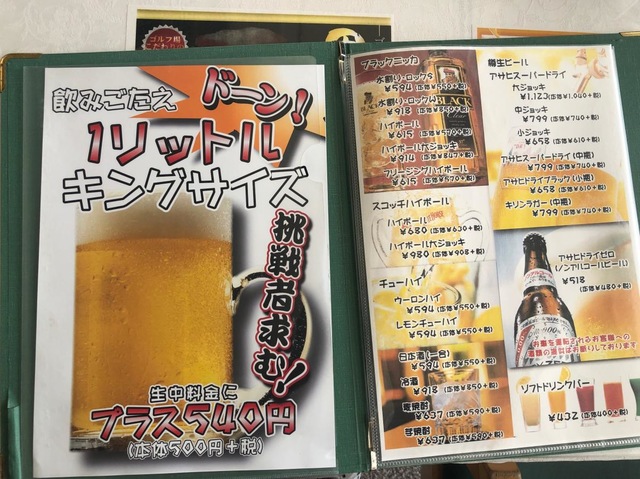 ゴルフ場
こだわりの
飲みごたえ
ドーン!
1リットル
キングサイズ
挑戦者求む!
生中料金に
プラス540円
(本体500円+税)
ブラックニッカ
水割り・ロックS
¥594 (本体¥550+税)
水割り・ロックW
¥918 (本体¥850+税)
ハイボール
¥615 (本体¥570+税)
ハイボール大ジョッキ
¥914 (本体¥847+税)
フリージングハイボール
¥615 (本体¥570+税)
スコッチハイボール
ハイボール
¥680 (本体¥630+税)
ハイボール大ジョッキ
¥980 (本体¥908+税)
チューハイ
ウーロンハイ
¥594 (本体¥550+税)
レモンチューハイ
¥594 (本体¥550+税)
日本酒(一合)
¥594 (本体¥550+税)
冷酒
¥918 (本体¥850+税)
麦焼酎
¥637 (本体¥590+税)
芋焼酎
¥637 (本体¥590+税)
樽生ビール
アサヒスーパードライ
大ジョッキ
¥1,123 (本体¥1,040+税)
中ジョッキ
¥799 (本体¥740+税)
小ジョッキ
¥658 (本体¥610+税)
アサヒスーパードライ(中瓶)
¥799 (本体¥740+税)
アサヒドライブラック(小瓶)
¥658 (本体¥610+税)
キリンラガー(中瓶)
¥799 (本体¥740+税)
アサヒドライゼロ
(ノンアルコールビール)
¥518
(本体¥480+税)
お車を運転されるお客様への
酒類の提供はお断りしております
ソフトドリンクバー
¥432 (本体¥400+税)
BLACK